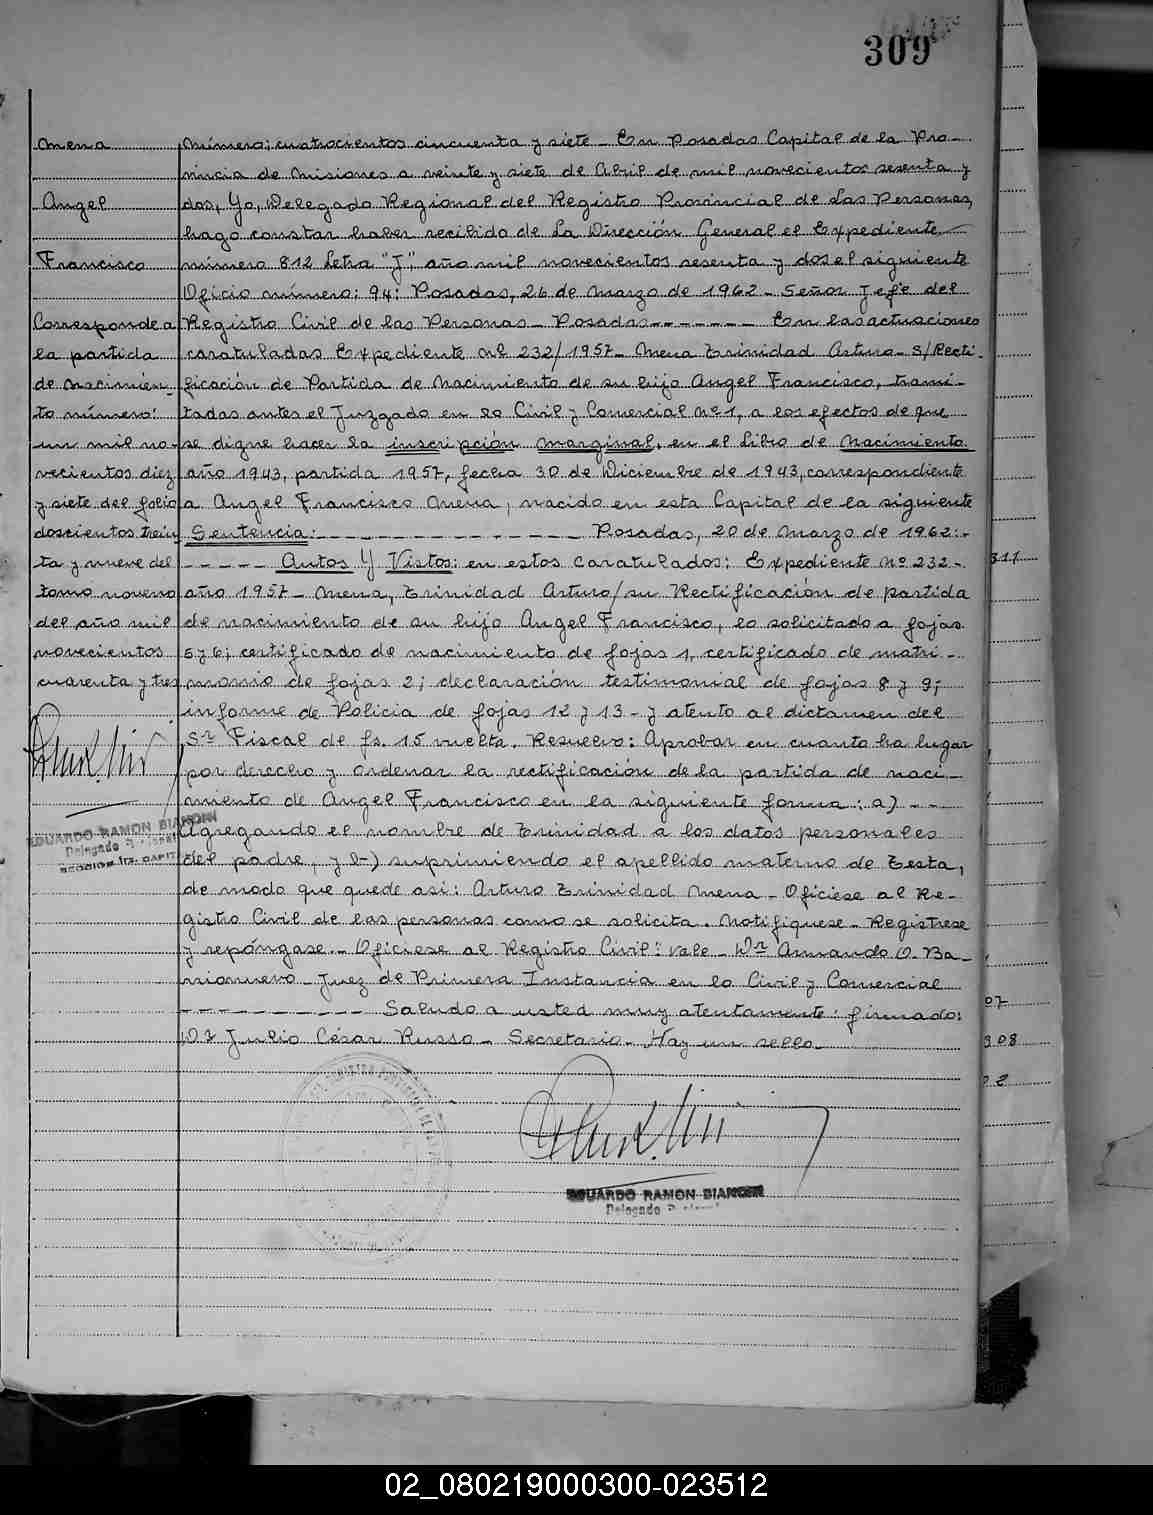 309
Mena
Angel
Francisco
Corresponde a
la partida
de Nacimien-
to número:
un mil no-
vecientos diez
y siete del folio
doscientos trein
ta y nueve del
tomo noveno
del año mil
novecientos
cuarenta y tres
EDUARDO RAMON BIANCHI
Delegado
Número; cuatrocientos cincuenta y siete - En Posadas Capital de la Pro-
vincia de Misiones a veinte y siete de Abril de mil novecientos sesenta y
dos, Yo, Delegado Regional del Registro Provincial de Las Personas,
hago constar haber recibido de La Dirección General el Expediente
número 812 Letra "J", año mil novecientos sesenta y dos el siguiente
Oficio número: 94: Posadas, 26 de Marzo de 1962 - Señor Jefe del
Registro Civil de las Personas - Posadas ------- En las actuaciones
caratuladas Expediente Nº 232/1957 - Mena Trinidad Arturo - S/Recti-
ficación de Partida de Nacimiento de su hijo Angel Francisco, trami-
tadas antes el Juzgado en lo Civil y Comercial Nº 1, a los efectos de que
se digne hacer la inscripción marginal, en el Libro de Nacimiento
año 1943, partida 1957, fecha 30 de Diciembre de 1943, correspondiente
a Angel Francisco Mena, nacido en esta Capital de la siguiente
Sentencia: - - - - - - - - - - - - Posadas, 20 de Marzo de 1962: -
- - - - - Autos Y Vistos: en estos caratulados: Expediente Nº 232 -
año 1957 - Mena, Trinidad Arturo/su Rectificación de partida
de nacimiento de su hijo Angel Francisco, lo solicitado a fojas
5 y 6; certificado de nacimiento de fojas 1, certificado de matri-
monio de fojas 2; declaración testimonial de fojas 8 y 9;
informe de Policia de fojas 12 y 13 - y atento al dictamen del
Sr Fiscal de fs. 15 vuelta. Resuelvo: Aprobar en cuanto ha lugar
por derecho y ordenar la rectificación de la partida de naci-
miento de Angel Francisco en la siguiente forma: a) - - -
Agregando el nombre de Trinidad a los datos personales
del padre, y b-) suprimiendo el apellido materno de Testa,
de modo que quede asi: Arturo Trinidad Mena - Ofíciese al Re-
gistro Civil de las personas como se solicita. Notifíquese - Registrese
y repóngase. - Ofíciese al Registro Civil: Vale - Dr Armando O. Ba-
rionuevo - Juez de Primera Instancia en lo Civil y Comercial
- - - - - - - - - - Saludo a usted muy atentamente: firmado:
Dr Julio César Russo - Secretario - Hay un sello -
EDUARDO RAMON BIANCHI
Delegado
311
07
308
02_080219000300-023512